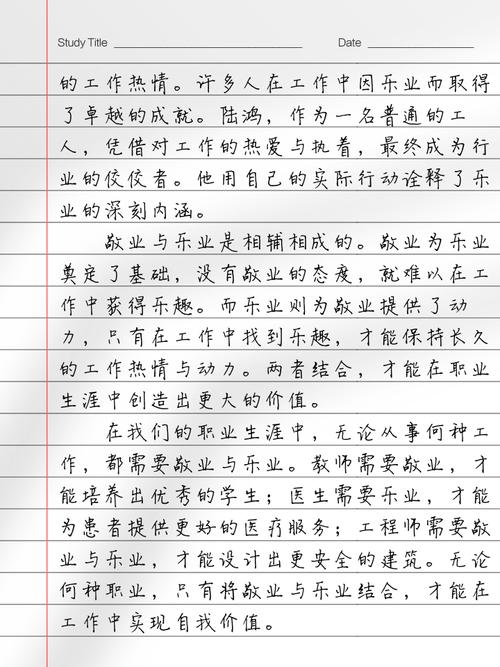 Study Title
Date
的工作热情。许多人在工作中因乐业而取得
了卓越的成就。陆鸿，作为一名普通的工
人，凭借对工作的热爱与执着，最终成为行
业的佼佼者。他用自己的实际行动诠释了乐
业的深刻内涵。
敬业与乐业是相辅相成的。敬业为乐业
奠定了基础，没有敬业的态度，就难以在工
作中获得乐趣。而乐业则为敬业提供了动
力，只有在工作中找到乐趣，才能保持长久
的工作热情与动力。两者结合，才能在职业
生涯中创造出更大的价值。
在我们的职业生涯中，无论从事何种工
作，都需要敬业与乐业。教师需要敬业，才
能培养出优秀的学生；医生需要乐业，才能
为患者提供更好的医疗服务；工程师需要敬
业与乐业，才能设计出更安全的建筑。无论
何种职业，只有将敬业与乐业结合，才能在
工作中实现自我价值。